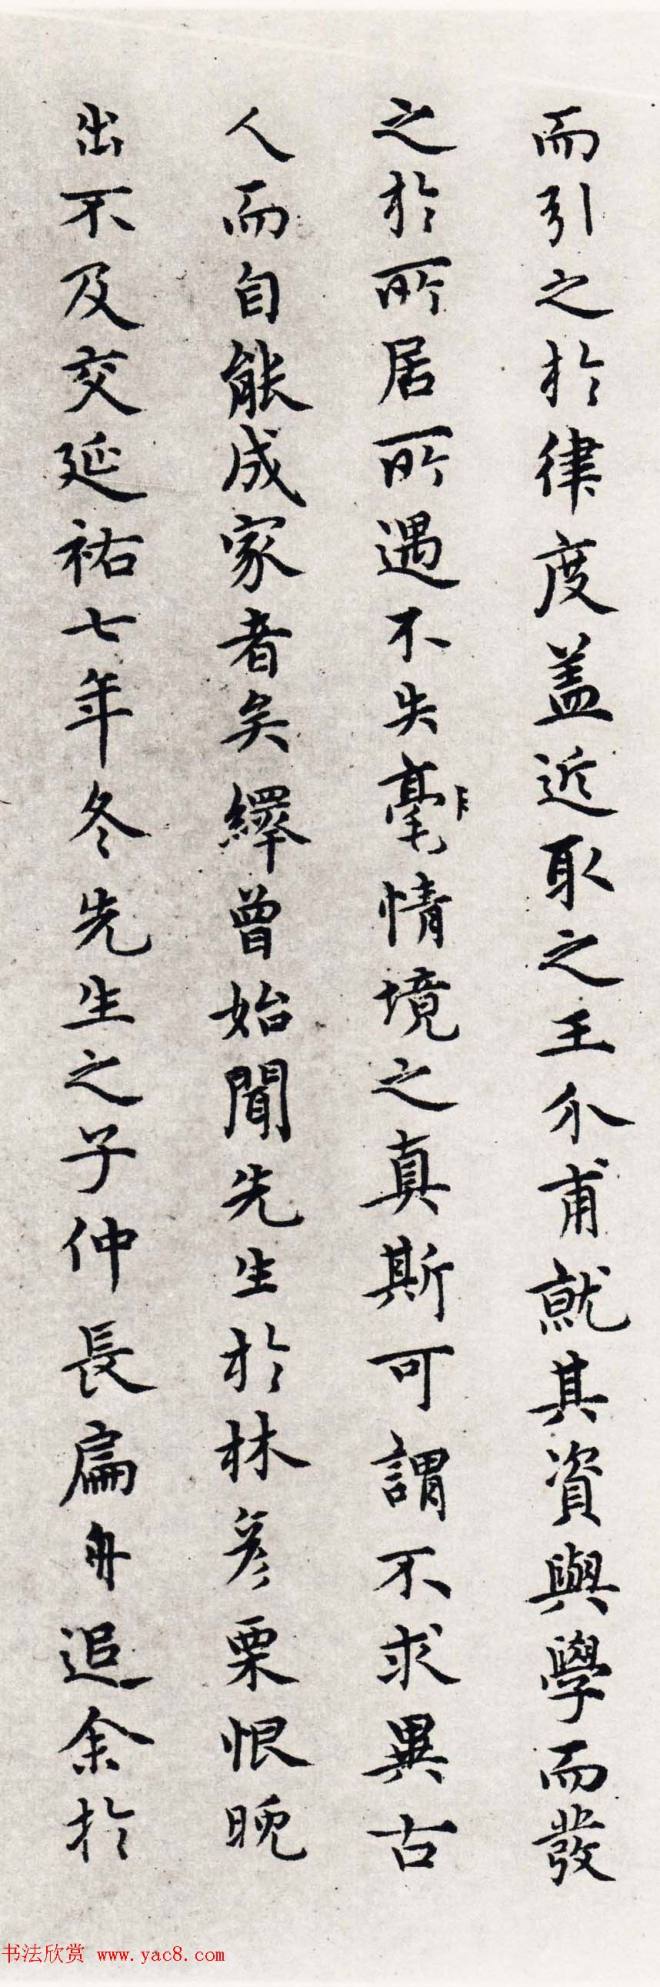 而引之於律度盖近取之王介甫就其資與學而發
之於所居所遇不失毫情境之真斯可謂不求異古
人而自能成家者矣繹曾始聞先生於林彦栗恨晚
出不及交延祐七年冬先生之子仲長扁舟追余於
书法欣赏 www.yac8.com